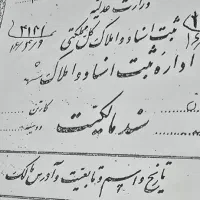 وزارت عدلیه
ثبت اسناد و املاک کل مملکتی
اداره ثبت اسناد و املاک
کارتن
دوسیه
سند مالکیت
تاریخ و اسم و تابعیت و آدرس مالک